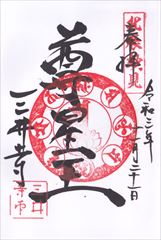 奉拝
令和三年
十一月二十一日
尊星王
三井寺
三井
寺印